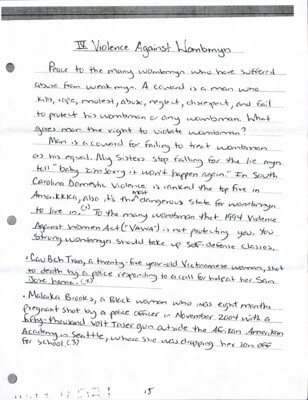 IV Violence Against Wombmyn
Peace to the many wombmyn who have suffered
abuse from weak myn. A coward is a man who
kills, rape, molest, abuse, neglect, disrespect, and fail
to protect his wombman or any wombman. What
gives man the right to violate wombman?
Man is a coward for failing to treat wombman
as his equal. My Sisters stop falling for the lie myn
tell "baby I'm sorry it won't happen again." In South
Carolina Domestic Violence is ranked the top five in
AmeriKKKa, also it's the most dangerous state for wombmyn
to live in.(2) To the many wombman that 1994 Violence
Against Women Act ("VAWA") is not protecting you. You
strong wombmyn should take up self-defense classes.
• Cau Bich Tran, a twenty-five year-old Vietnamese woman, shot
to death by a police responding to a call for help at her San
Jose home.(3)
• Malaika Brooks, a Black woman who was eight months
pregnant shot by a police officer in November 2004 with a
fifty-thousand volt Taser gun outside the African American
Academy in Seattle, where she was dropping her son off
for school.(3)
15